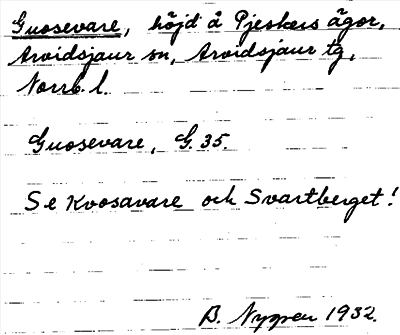 Guosevare, höjd å Pjeskers ägor,
Arvidsjaur sn, Arvidsjaur tg,
Norrb. l.
Guosevare, G. 35.
Se Kvosavare och Svartberget!
B. Nygren 1932.